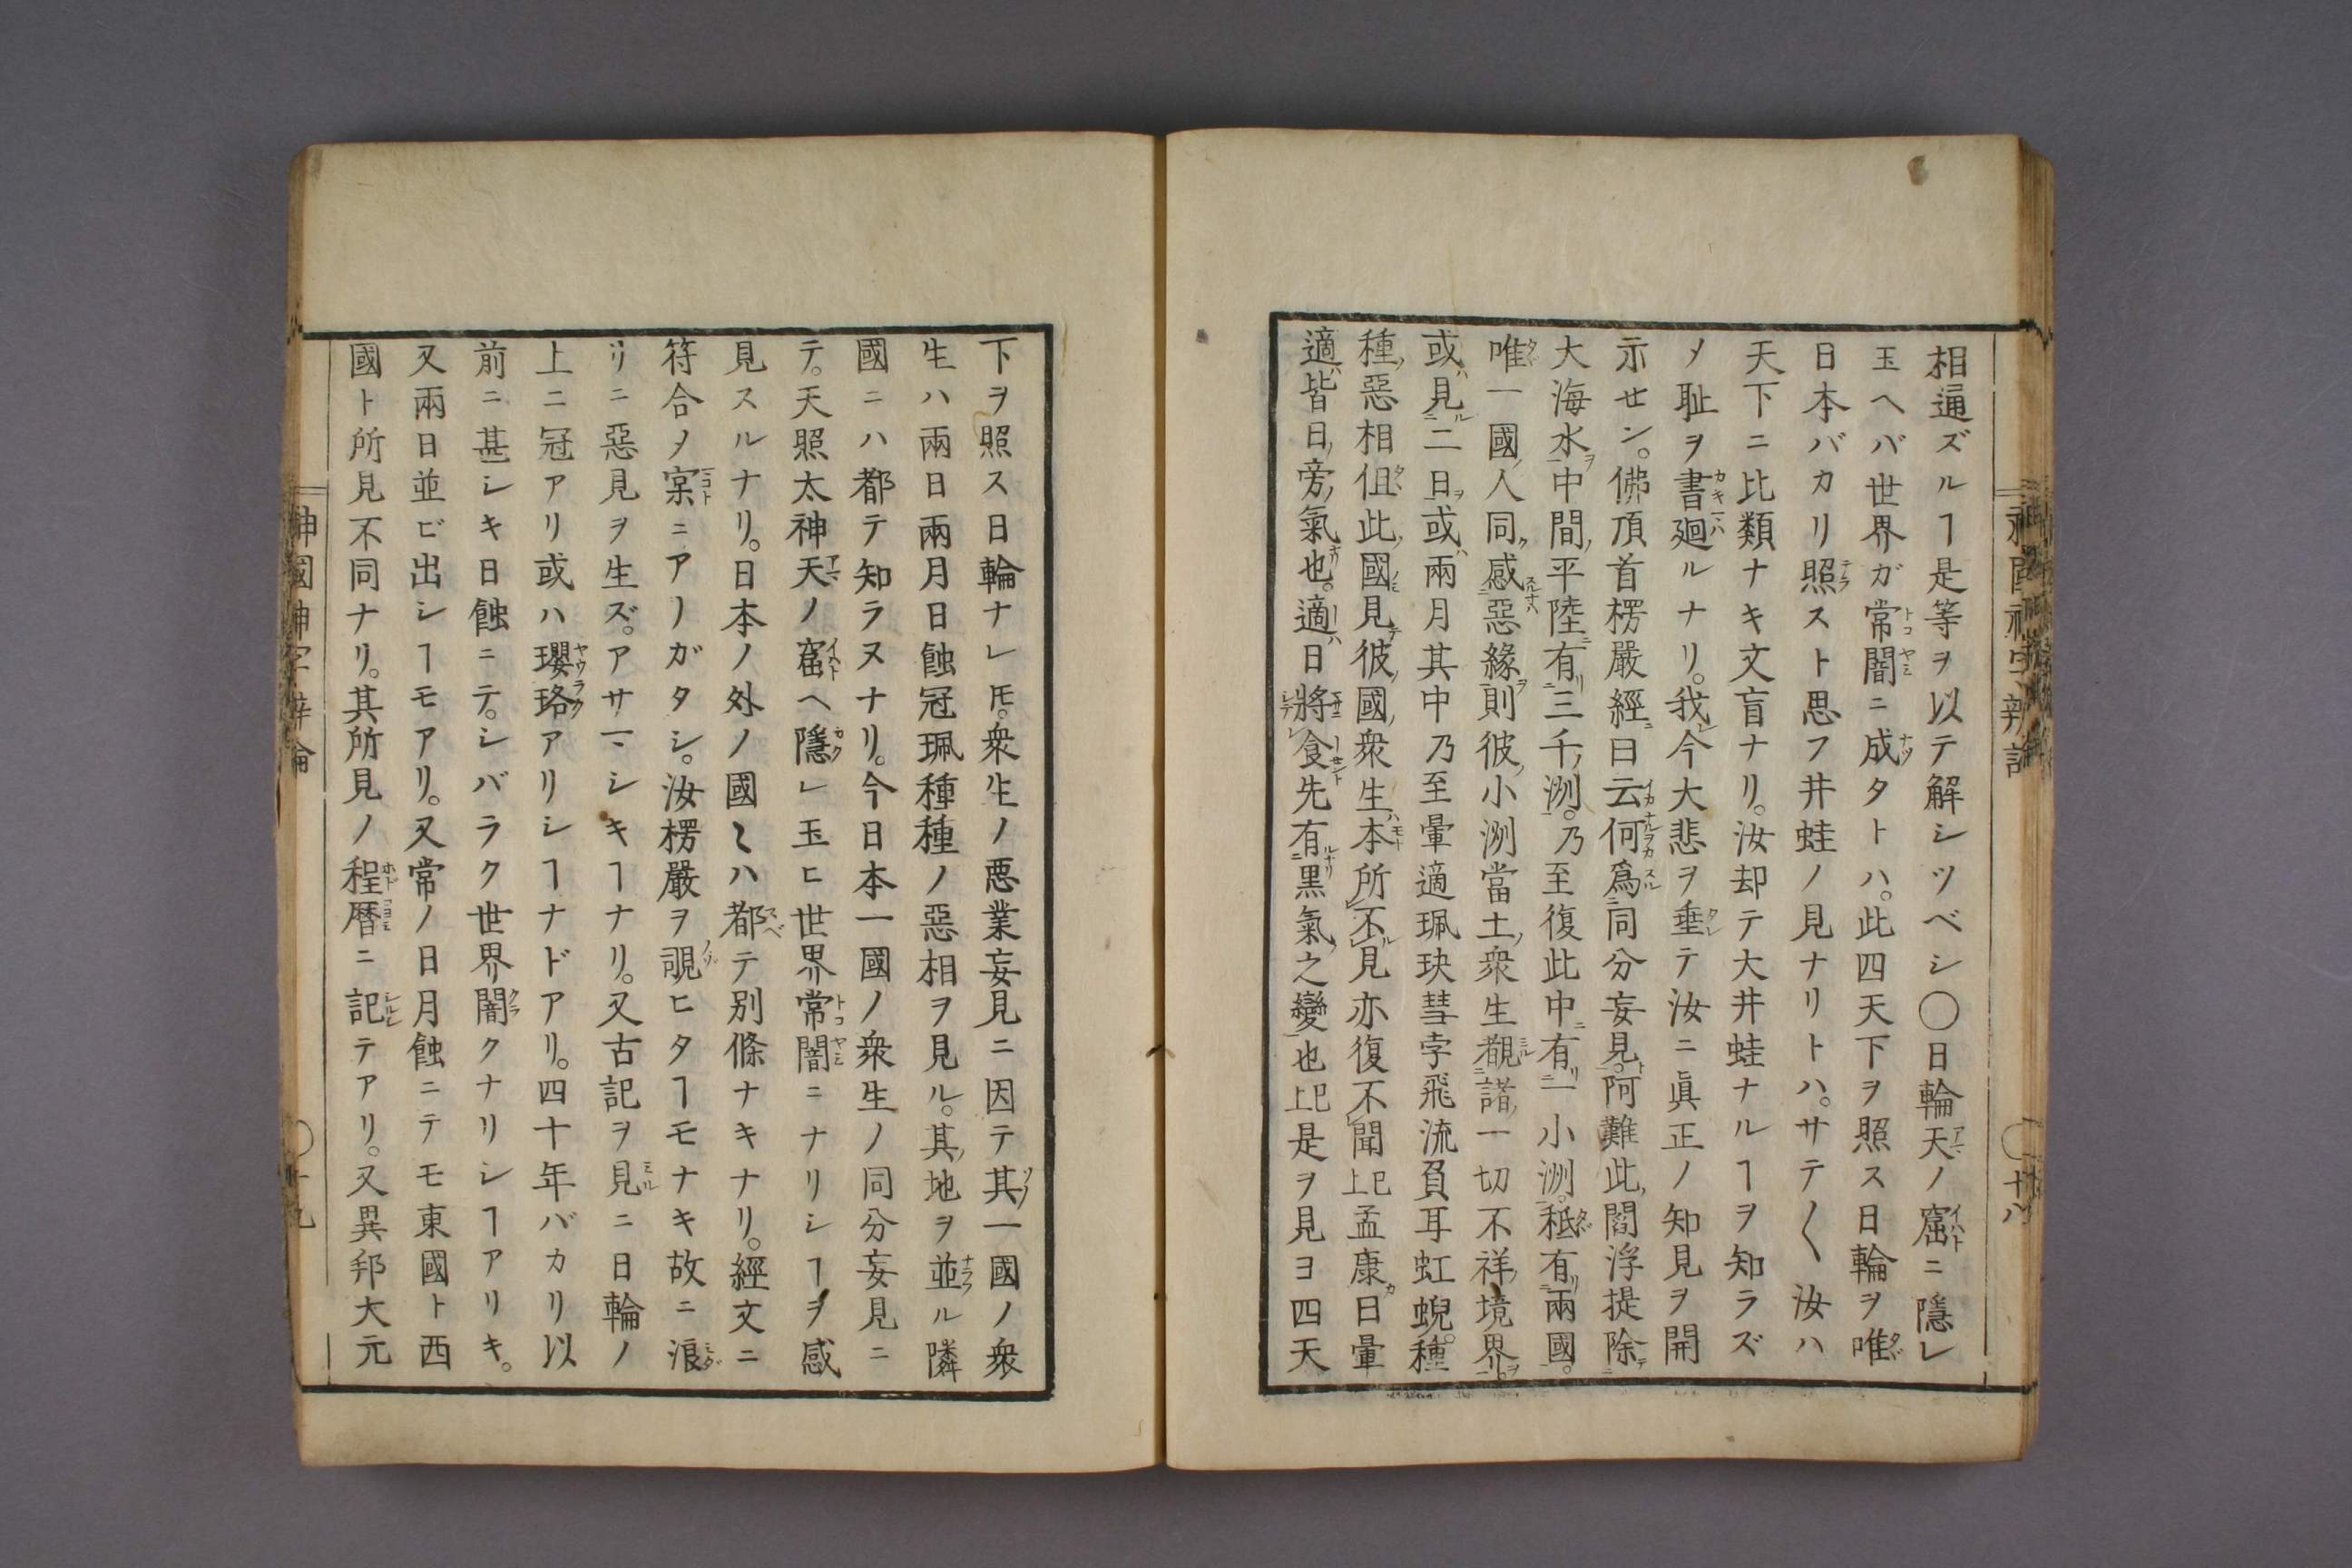 相通ズルヿ是等ヲ以テ解シツベシ〇日輪天ノ窟ニ隱レ
玉ヘバ世界ガ常闇ニ成タトハ。此四天下ヲ照ス日輪ヲ唯
日本バカリ照スト思フ井蛙ノ見ナリトハ。サテ〱汝ハ
天下ニ比類ナキ文盲ナリ。汝却テ大井蛙ナルヿヲ知ラズ
メ耻ヲ書廻ルナリ。我今大悲ヲ垂テ汝ニ眞正ノ知見ヲ開
示せン。佛頂首楞嚴經曰云何爲同分妄見。阿難此閻浮提除
大海水中間平陸有三千洲。乃至復此中有一小洲。秪有兩國。
唯一國人同感惡緣則彼小洲當土衆生覩諸一切不祥境界
或見二日或兩月其中乃至暈適珮玦彗孛飛流負耳虹蜺。種
種惡相但此國見彼國衆生本所不見亦復不聞上巳孟康日暈
適皆日旁氣也。適日將食先有黑氣之變也上巳是ヲ見ヨ四天
神國神字辨論
〇十八
下ヲ照ス日輪ナレ𪜈。衆生ノ悪業妄見ニ因テ其一國ノ衆
生ハ兩日兩月日蝕冠珮種種ノ惡相ヲ見ル。其地ヲ並ル隣
國ニハ都テ知ラヌナリ。今日本一國ノ衆生ノ同分妄見ニ
テ。天照太神天ノ窟ヘ隱レ玉ヒ世界常闇ニナリシヿヲ感
見スルナリ。日本ノ外ノ國〻ハ都テ別條ナキナリ。經文ニ
符合ノ㝡ニアノガタシ。汝楞嚴ヲ覗ヒタヿモナキ故ニ浪
リニ惡見ヲ生ズ。アサマシキヿナリ。又古記ヲ見ルニ日輪ノ
上ニ冠アリ或ハ瓔珞アリシヿナドアリ。四十年バカリ以
前ニ甚シキ日蝕ニテ。シバラク世界闇クナリシヿアリキ。
又兩日並ビ出シヿモアリ。又常ノ日月蝕ニテモ東國ト西
國ト所見不同ナリ。其所見ノ程暦ニ記テアリ。又異邦大元
神國神字辨論
〇十九